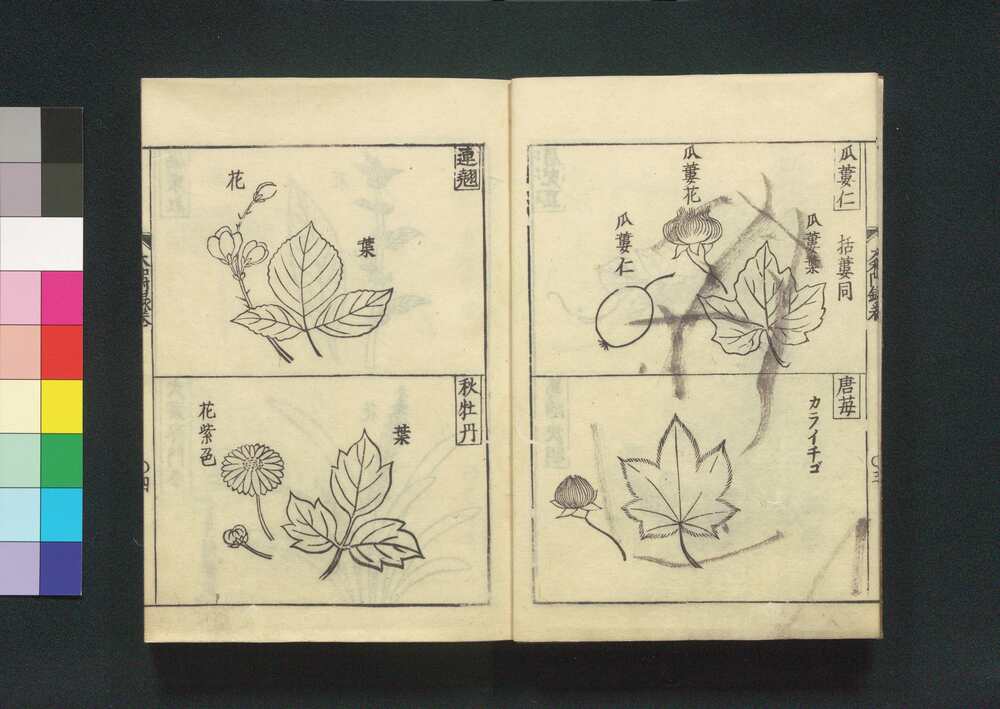 瓜蔞仁
括蔞同
瓜蔞葉
瓜蔞花
瓜蔞仁
唐苺
カライチゴ
〇三
連翹
葉
花
秋牡丹
葉
花紫色
〇四